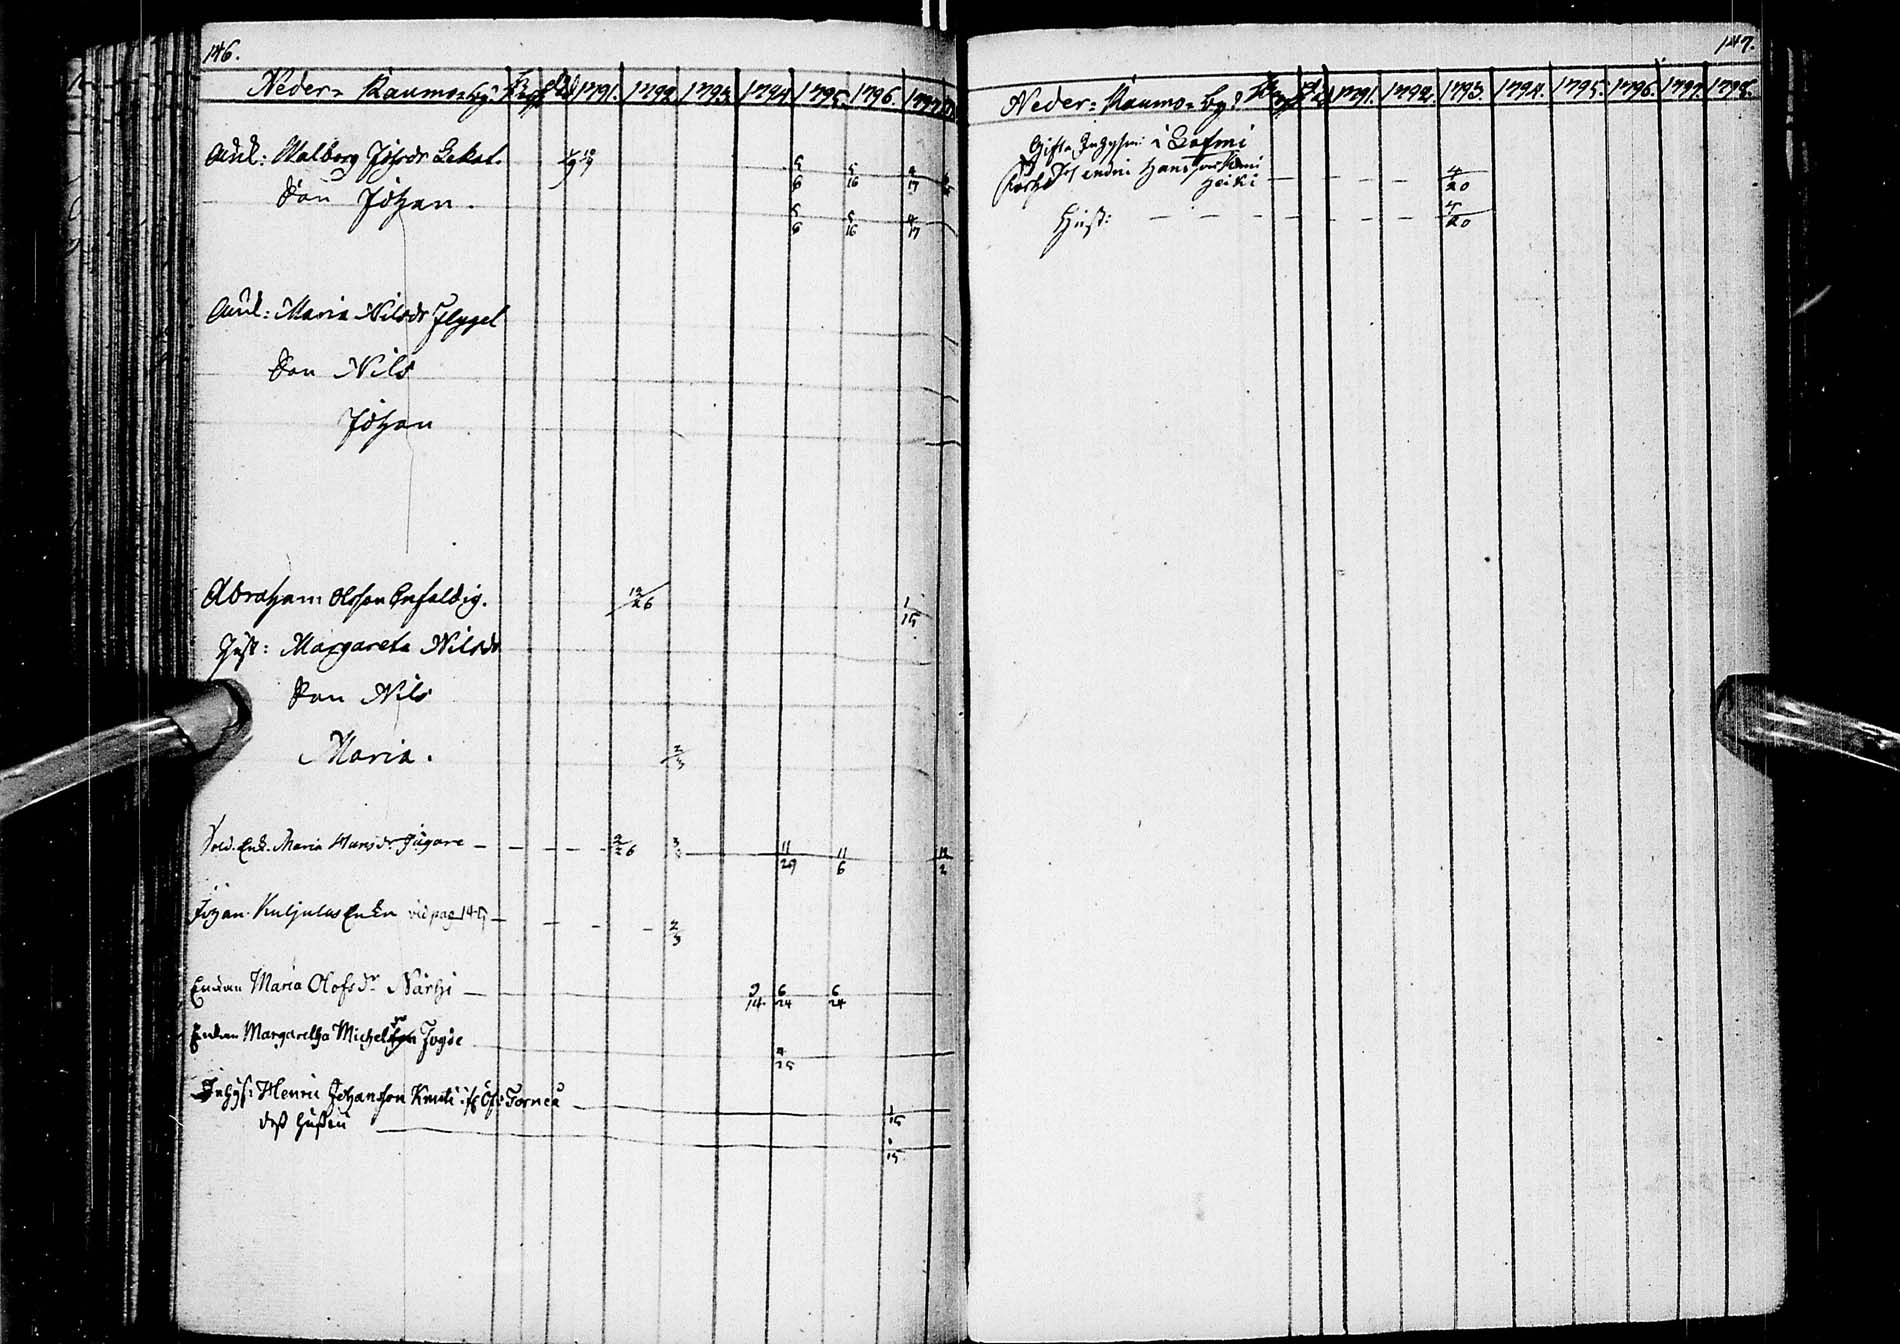 146.
Neder= Raumo= by 1791. 1792 1793 1794 1795 1796. 1797
Enk: Walborg Johsdr Lekat. 5/6 5/16 4/17
Son Johan. 5/6 5/16 4/17
Enk: Maria Nilsdr Flygel
Son Nils
Johan
Abraham Olsson Enfaldig. 12/26 1/15
Hust: Margareta Nilsdr
Son Nils
Maria. 2/3
Sold. Enk. Maria Hansdr Jägare 2/26 11/29 11/6 12/2
Johan Kuljulas Enka vid pag 145 2/3
Enkan Maria Olofsdr Närhi 9/14 6/24 6/24
Enkan Margaretha Michelsdr 4/25
Inhys: Henric Johansson Knuti if: Öfr Torneå 1/15
dess hustru 1/15
147.
Neder= Raumo= by 1791. 1792. 1793. 1794. 1795. 1796. 1797. 1798.
Gifta Inhyses: i
Hans Heiki 4/20
Hust: 4/20